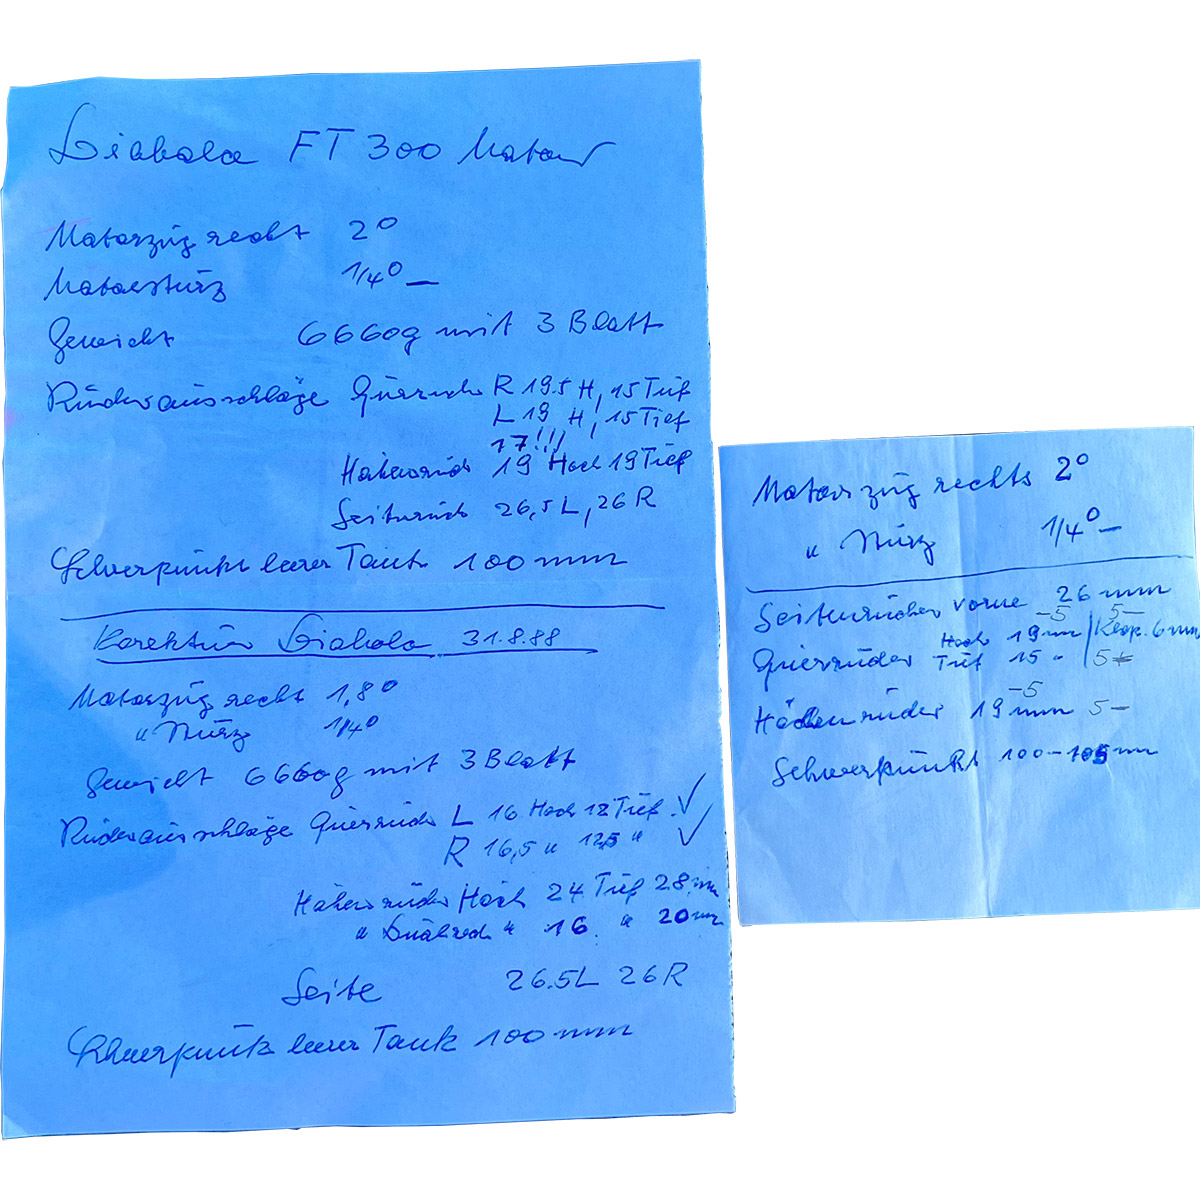 Diabolo FT 300 Motor
Motorzug recht 2°
Motorsturz 1/4° –
Gewicht 6660g mit 3 Blatt
Ruderausschläge Querrud R 19.5 H, 15 Tief
L 19 H, 15 Tief
17!!!
Höhenrud 19 Hoch 19 Tief
Seitenrud 26,5 L, 26 R
Schwerpunkt leerer Tank 100 mm
Korektur Diabolo 31.8.88
Motorzug recht 1,8°
" Sturz 1/4°
Gewicht 6660g mit 3 Blatt
Ruderausschläge Querrud L 16 Hoch 12 Tief ✓
R 16,5 " 12,5 " ✓
Höhenruder Hoch 24 Tief 28 mm
" Dualrad " 16 " 20 mm
Seite 26.5L 26 R
Schwerpunk leerer Tank 100 mm
Motorszug rechts 2°
" Sturz 1/4° –
Seitenruder vorne 26 mm
–5 5–
Hoch 19 mm / Klap. 6 mm
Querruder Tief 15 " 5
–5
Höhenruder 19 mm 5–
Schwerpunkt 100–105 mm